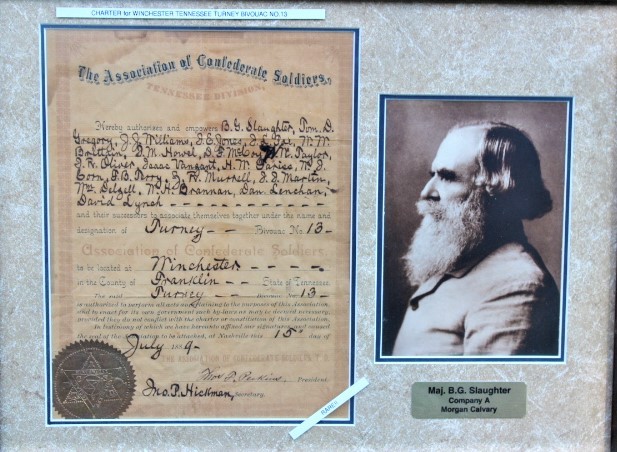 CHARTER for WINCHESTER TENNESSEE TURNEY BIVOUAC NO.13
The Association of Confederate Soldiers,
TENNESSEE DIVISION,
Hereby authorizes and empowers B.G. Slaughter, Tom. D.
Gregory, J. J. Williams, F. E. Jones, W. W.
J. M. Howel, Taylor,
J. R. Oliver, Isaac Vanzant, H. W.
Corn, F. B. Terry, J. H. Murrell, J. J. Martin,
Wm. W. H. Brannan, Dan. Lenehan,
David Lynch
and their successors to associate themselves together under the name and
designation of Turney - - Bivouac No 13 -
Association of Confederate Soldiers,
to be located at Winchester - - - -
in the County of Franklin - - State of Tennessee.
The said Turney - - Bivouac No. 13 -
is authorized to perform all acts the purposes of this Association,
and to enact for its own government such by-laws as may be deemed necessary,
provided they do not conflict with the charter or constitution of this Association.
In testimony of which we have hereunto affixed our signatures and caused
the seal of the Association to be attached, at Nashville this 15 day of
July 1889-
Wm. P. President.
Jno. P. Hickman, Secretary.
RARE!!
Maj. B.G. Slaughter
Company A
Morgan Calvary